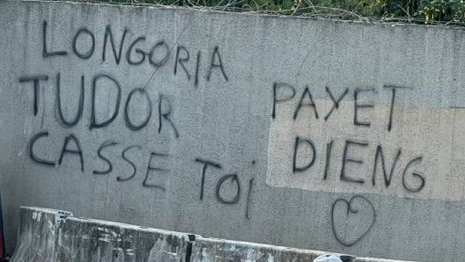 LONGORIA
TUDOR
CASSE TOI
PAYET
DIENG